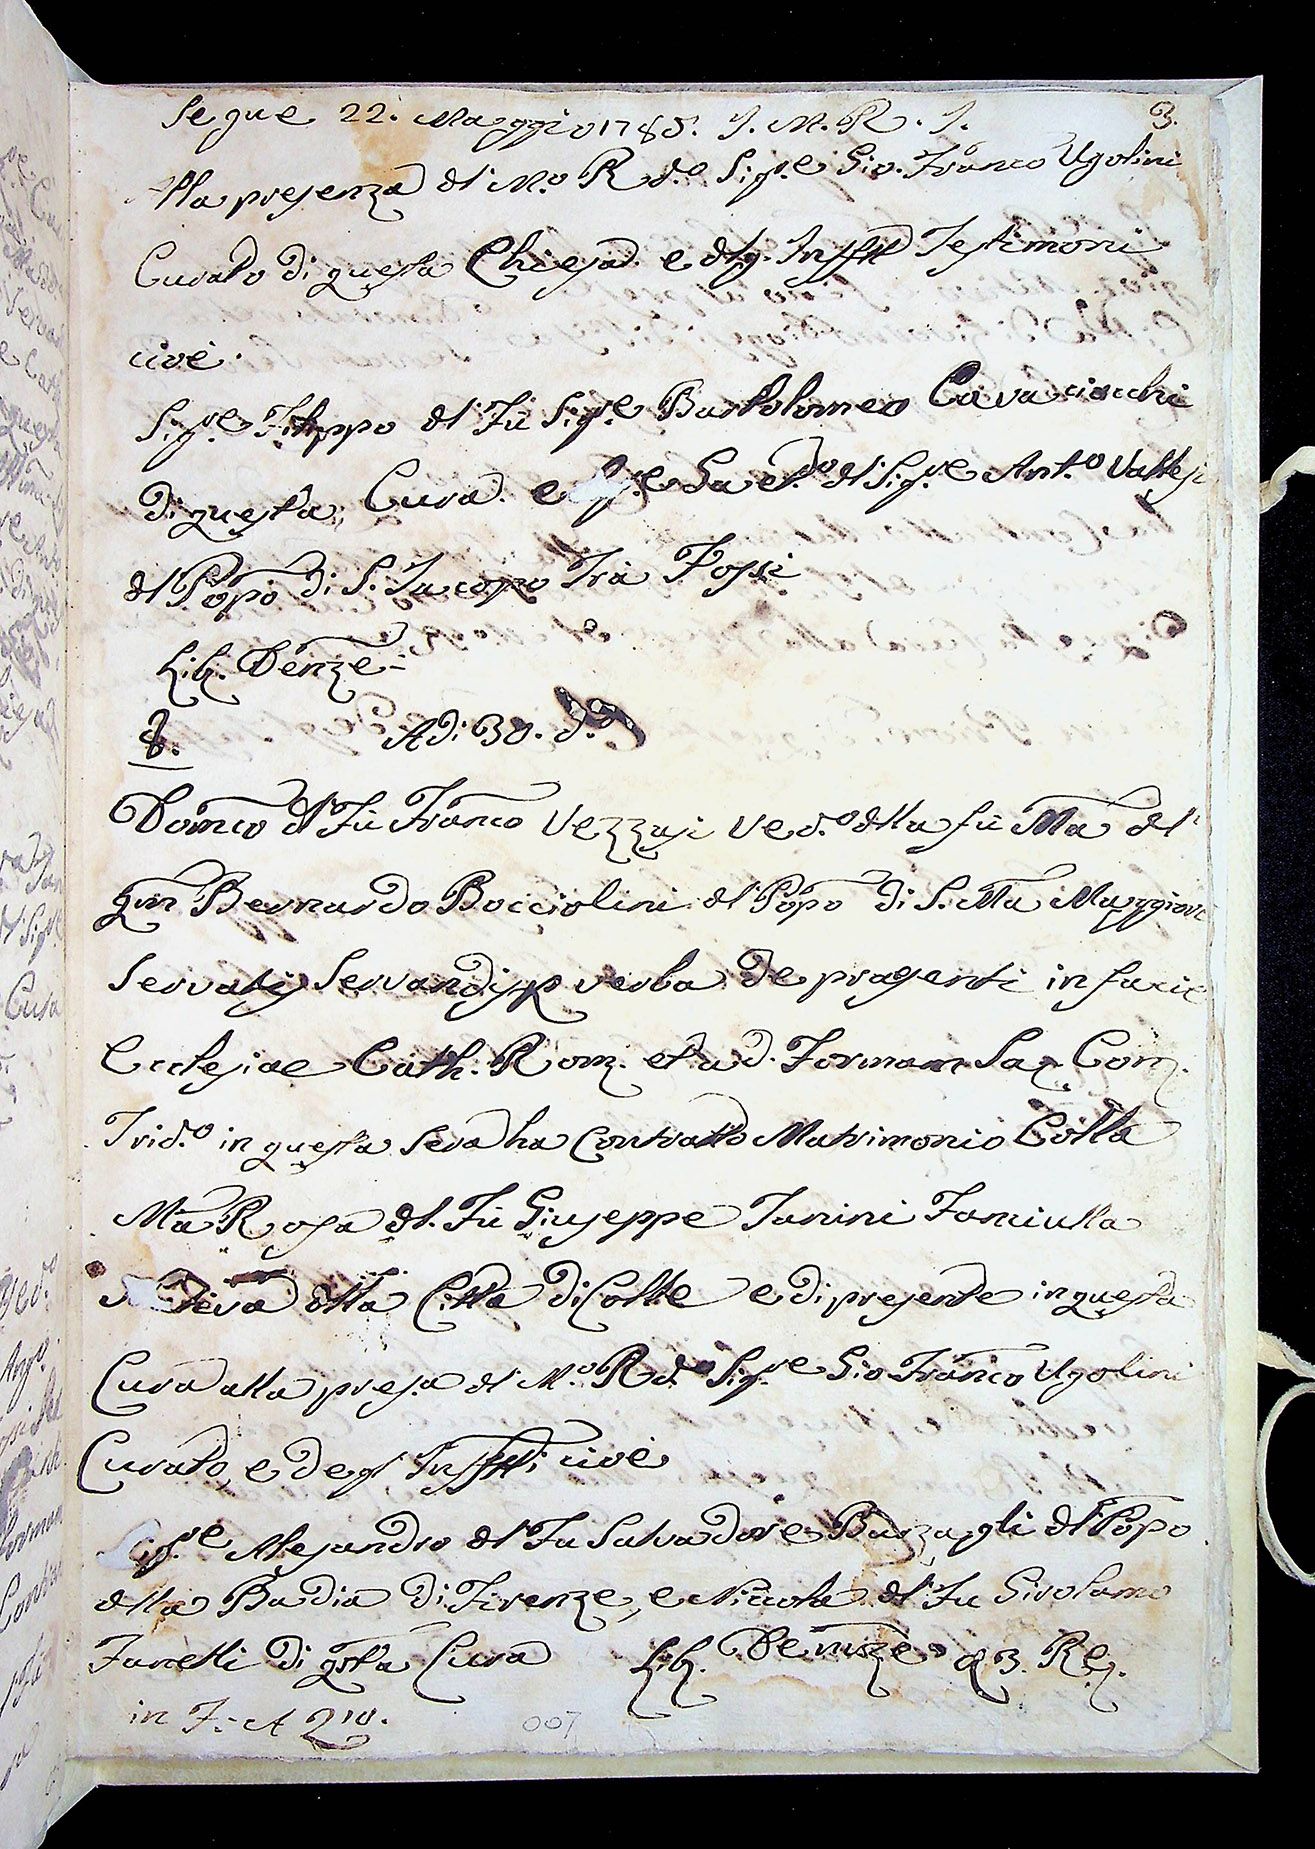 Segue 22. Maggio 1785. I. M. R. I. 3.
Alla presenza dl M.o R.do Sig.re Gio. Franco Ugolini
Curato di questa Chiesa. e dlg. Infftti Testimoni
cioè.
Sig.re Filippo dl Fù Sig.re Bartolomeo Cavaciocchi
di questa, Cura. e Sig.re Gaet.o dl Sig.re Ant.o Vallesi
dl Popo di S. Jacopo Trà Fossi
Lib. Denze
8. Adi 30. do
Domco dl Fù Franco Vezzasi Ved.o dlla fù Ma dl
qm Bernardo Bocciolini dl Popo di S. Ma Maggiore
Servatis Servandis p verba de pragenti in facie
Ecclesiae Cath. Rom. et ad. Formam Sac. Con.
Trid.o in questa sera ha Contratto Matrimonio Colla
Ma Rosa dl. Fù Giuseppe Fanciulla
dlla Città di Colle e di presente in questa
Cura alla pres.a dl M.o R.do Sig.re Gio Franco Ugolini
Curato, e degl Infftti cioè
Sig.re Alesandro dl Fu Salvadore Barzagli dl Popo
dlla Badia di Firenze, e Niccola dl Fu Girolamo
di qsta Cura Lib. Denze a 3. Reg.
in F: A 210.
007